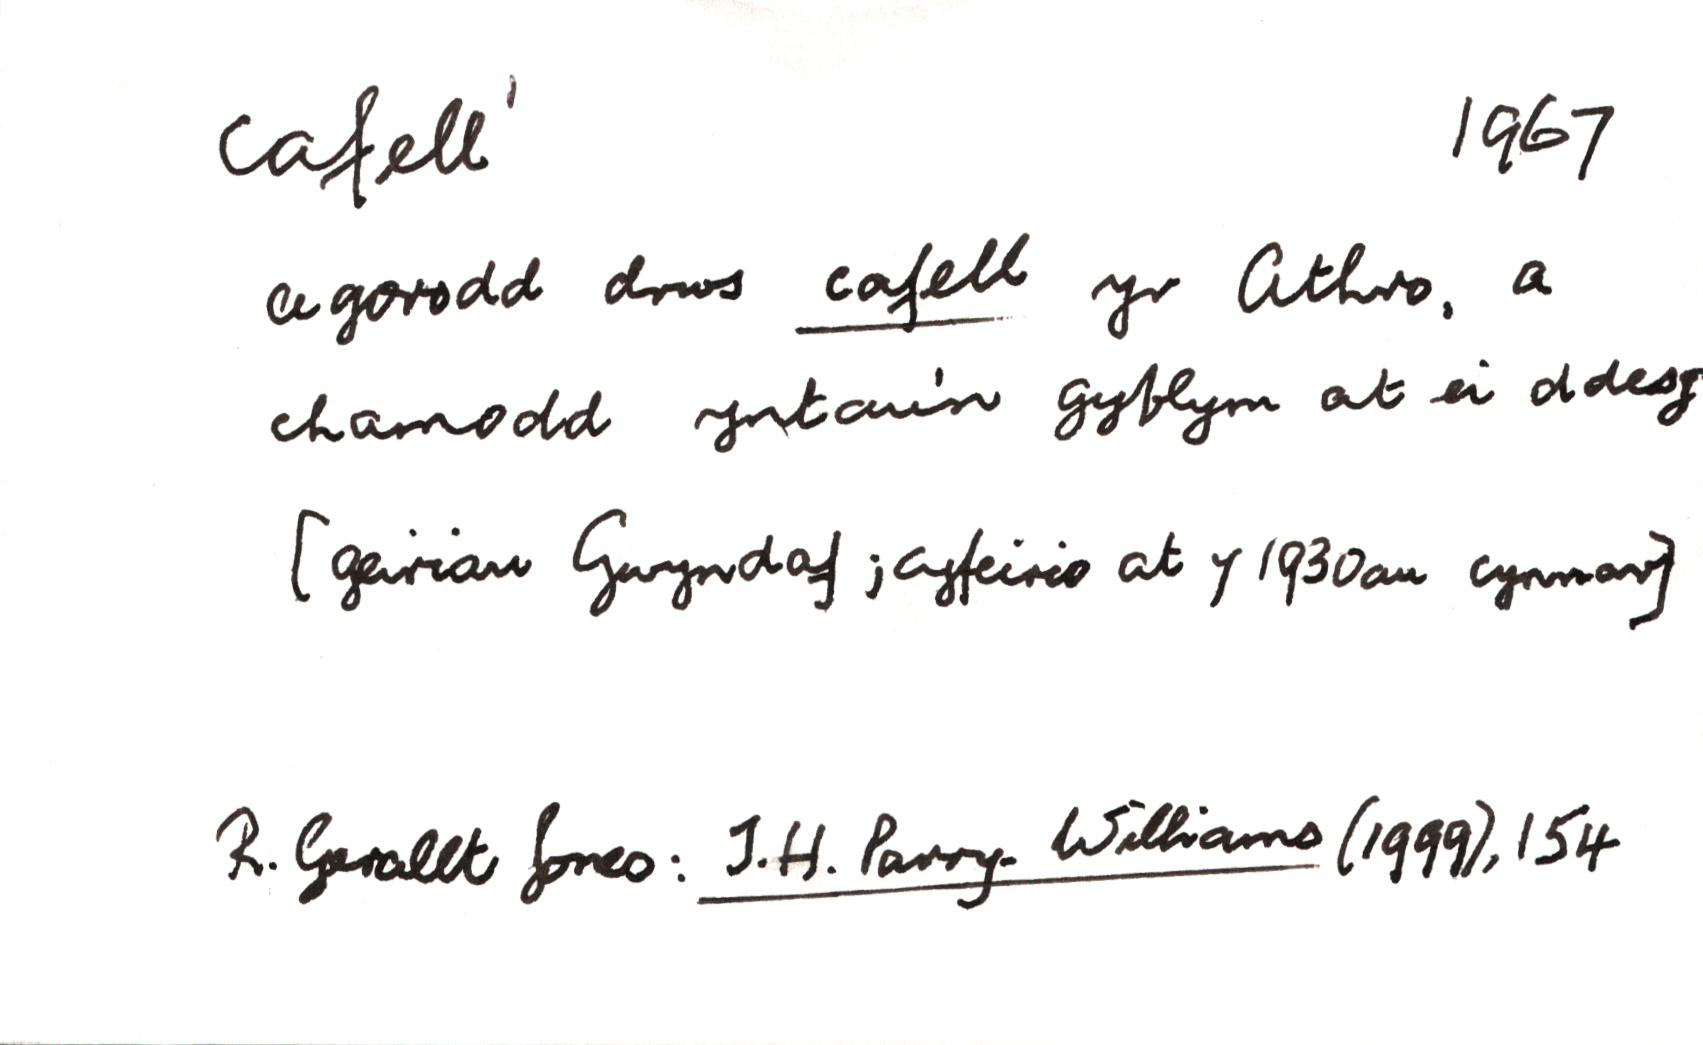 cafell¹ 1967
agorodd drws cafell yr Athro, a
chamodd yntau'n gyflym at ei ddesg
[geiriau Gwyndaf; cyfeirio at y 1930au cynnar]
R. Gerallt Jones: T.H. Parry-Williams (1999), 154